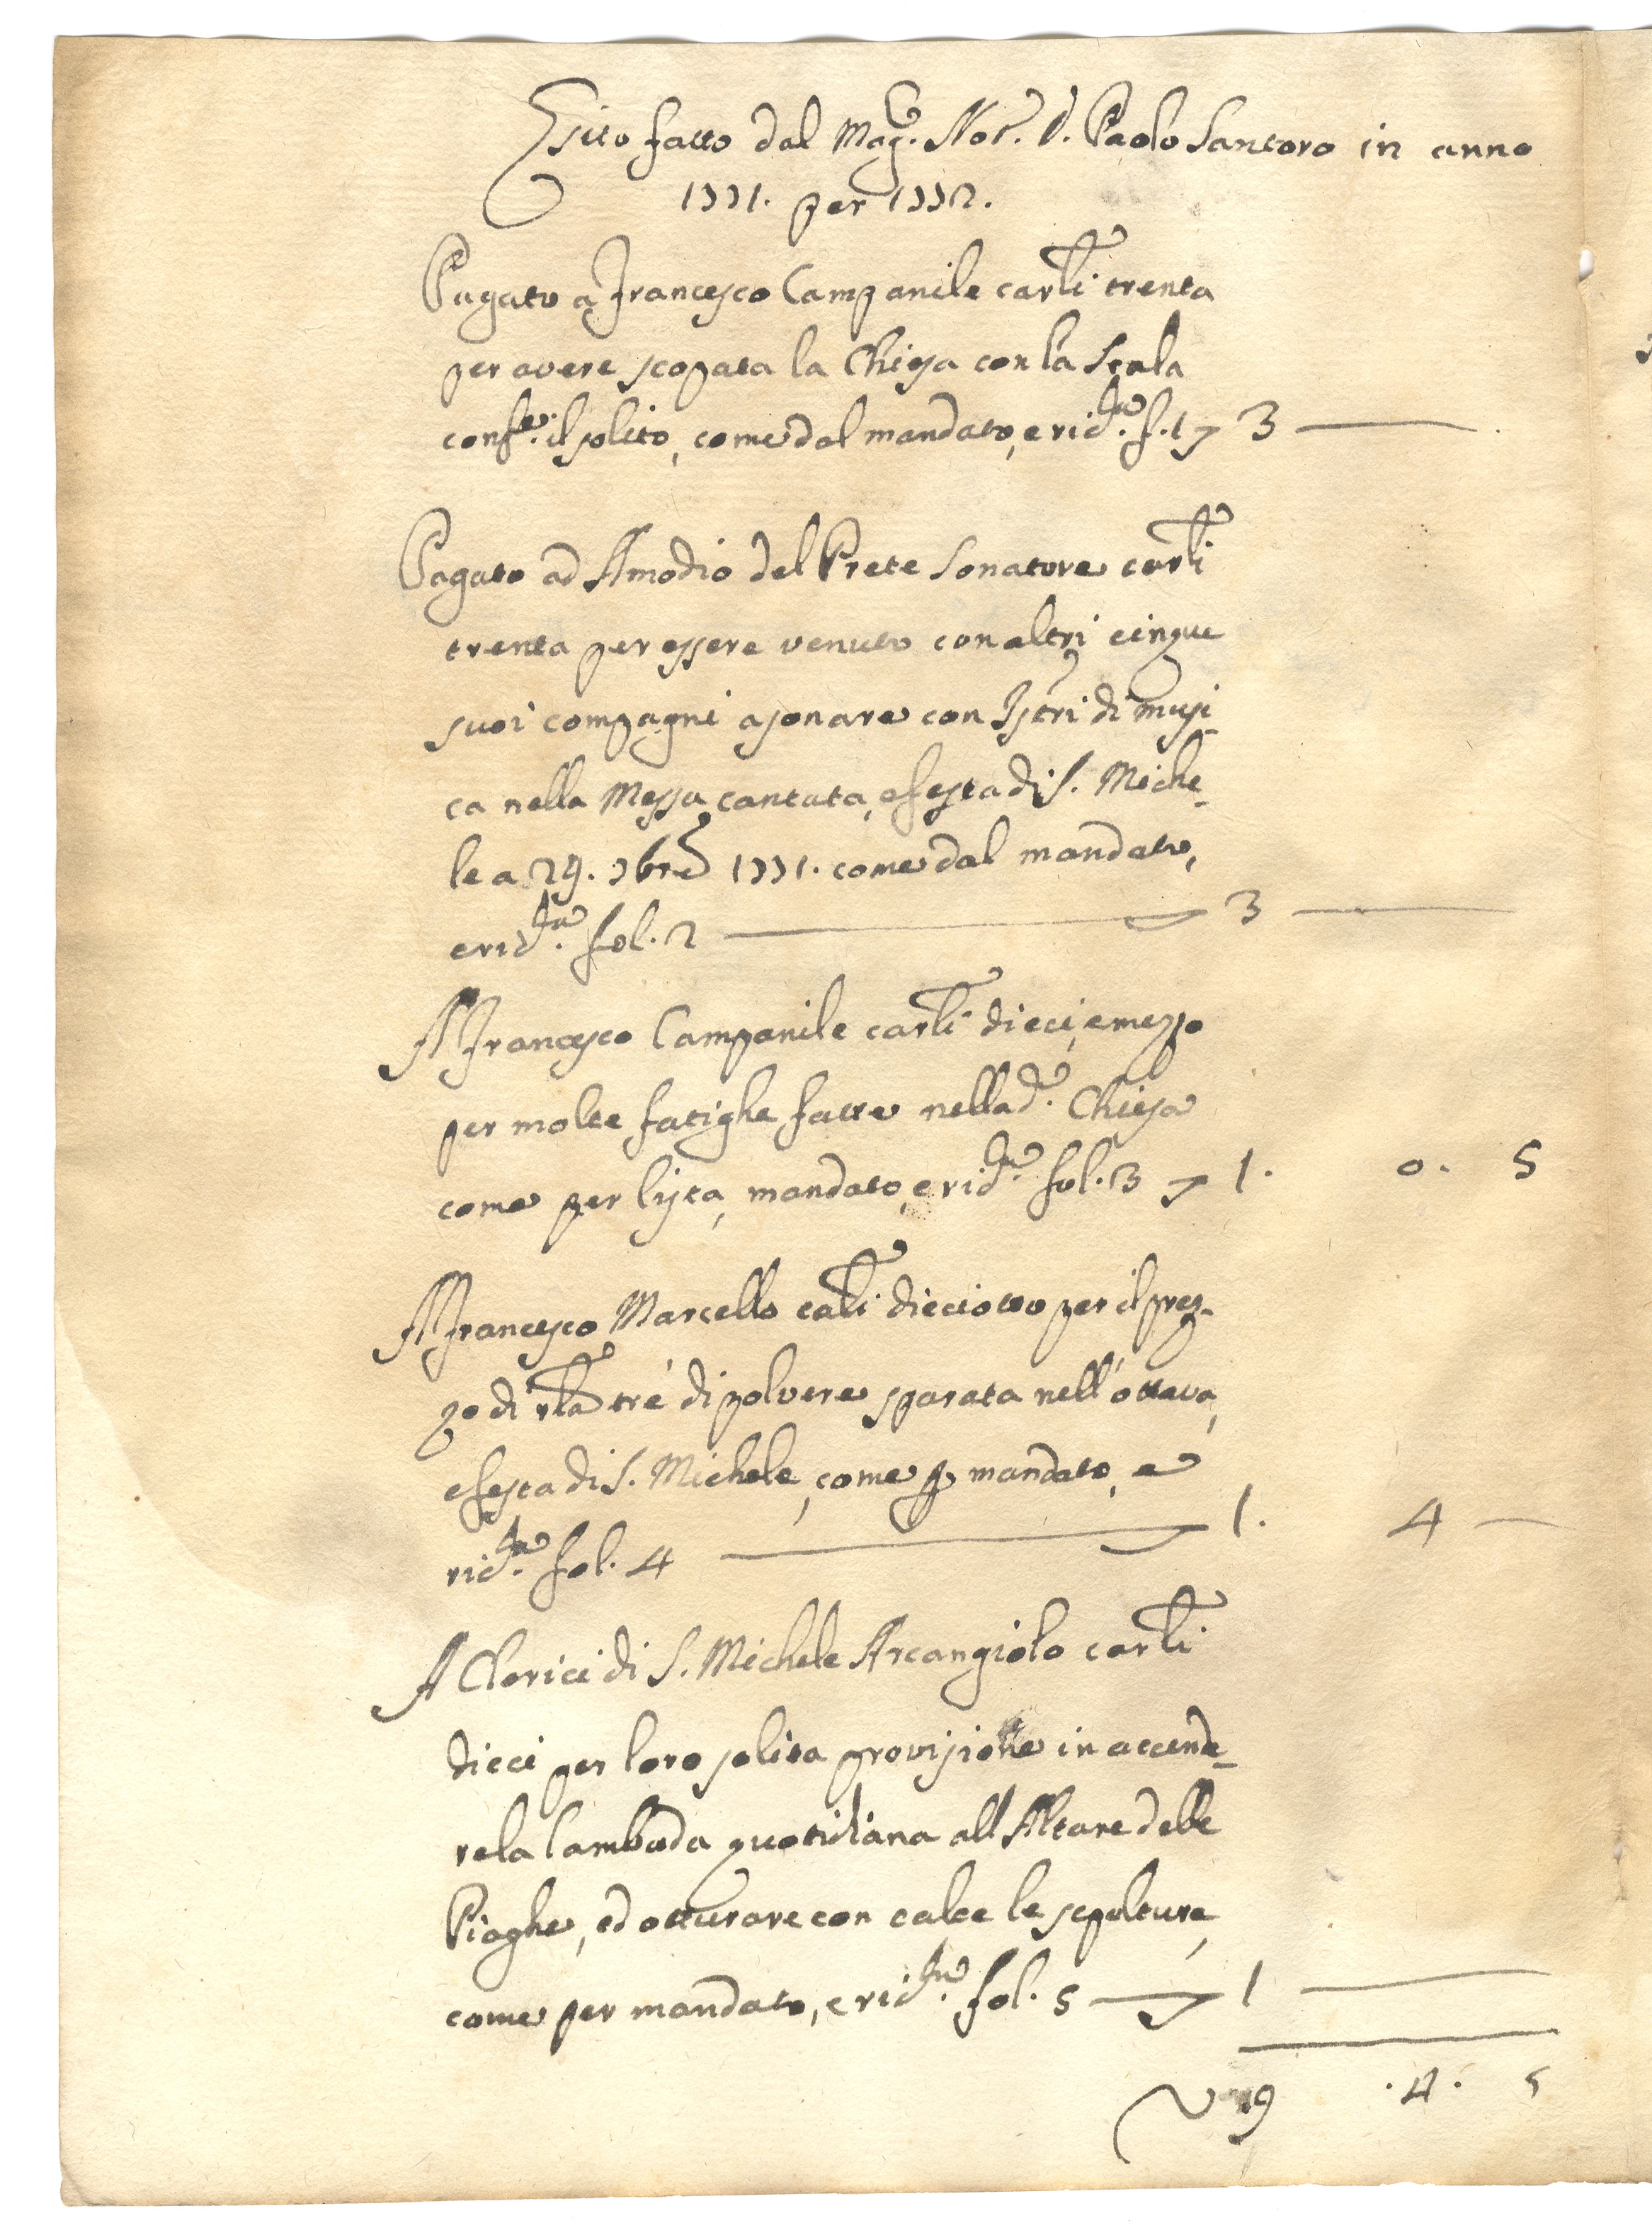 Esito fatto dal Mag.co Not.r D. Paolo Santoro in anno
1771. per 1772.
Pagato a Francesco Campanile carli trenta
per avere scopata la Chiesa con la Scala
conf.e il solito, come dal mandato, e rid.ta f. 1 3
Pagato ad Amodio del Prete Sonatore carli
trenta per essere venuto con altri cinque
suoi compagni a sonare con Istri di musi
ca nella Messa cantata, e festa di S. Miche
le a 29. 7bre 1771. come dal mandato,
e rid.ta fol. 2 3
A Francesco Campanile carli dieci, e mezzo
per molte fatighe fatte nella d.a Chiesa
come per lista, mandato, e rid.ta fol. 3 1. 0. 5
A Francesco Marcello carli dieciotto per il prez
zo di rla trè di polvere sparata nell'ottava,
e festa di S. Michele, come p mandato, e
rid.ta fol. 4 1. 4
A Clerici di S. Michele Arcangiolo carli
dieci per loro solita provisione in accende
re la lambada quotidiana all'Altare delle
Piaghe, ed otturare con calce le sepolture,
come per mandato, e rid.ta fol. 5 1
9 .4. 5